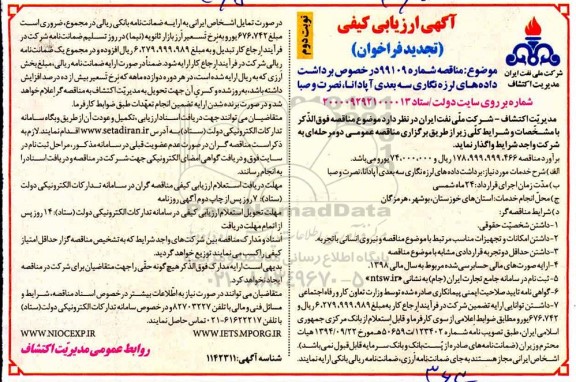 آگهی ارزیابی کیفی
(تجدید فراخوان)
نوبت دوم
شرکت ملی نفت ایران
مدیریت اکتشاف
موضوع: مناقصه شماره ۹۹۱۰۹ درخصوص برداشت
داده‌های لرزه نگاری سه بعدی آپادانا، نصرت و صبا
شماره بر روی سایت دولت/ستاد ۲۰۰۰۰۹۲۹۲۱۰۰۰۰۱۳
مدیریّت اکتشاف - شرکت ملّی نفت ایران در نظر دارد موضوع مناقصه فوق الذّکر
با مشخّصات و شرایط کلّی زیر از طریق برگزاری مناقصه عمومی دو مرحله‌ای به
شرکت واجد شرایط واگذار نماید.
برآورد مناقصه ۱۷۸.۹۹۹.۹۹۹.۴۶۶ ریال و ۷۴.۰۰۰.۰۰۰ یورو می‌باشد.
الف) شرح خدمات مورد نیاز: برداشت داده‌های لرزه نگاری سه بعدی آپادانا، نصرت و صبا
ب) مدّت زمان اجرای قرارداد: ۲۴ ماه شمسی
ج) محل انجام خدمات: استان‌های خوزستان، بوشهر، هرمزگان
د) شرایط مناقصه‌گر:
۱- داشتن شخصیّت حقوقی.
۲- داشتن امکانات و تجهیزات مناسب مرتبط با موضوع مناقصه و نیروی انسانی باتجربه.
۳- داشتن حداقل دو تجربه قراردادی مشابه با موضوع مناقصه.
۴- ارایه صورت‌های مالی حسابرسی شده مربوط به سال مالی ۱۳۹۸.
۵- ثبت نام در سامانه جامع تجارت ایران (جام) به نشانی «ntsw.ir»
۶- گواهی نامه تایید صلاحیت ایمنی پیمانکاری صادره شده توسط وزارت تعاون کار و رفاه اجتماعی
۷- داشتن توانایی ارایه تضمین شرکت در فرآیند ارجاع کار به مبلغ ۶.۲۷۹.۹۹۹.۹۸۹ ریال و
۶۷۶.۷۴۲ یورو مطابق ضوابط اعلامی از سوی کارفرما و قابل استفاده از بانک مرکزی جمهوری
اسلامی ایران، طبق تصویب نامه شماره ۱۲۳۴۰۲/ت۵۰۶۵۹هـ مورخ ۱۳۹۴/۰۹/۲۲ هیات
محترم وزیران (ضمانت‌نامه‌های صادره از پُست بانک و بانک سرمایه قابل قبول نمی‌باشد).
اشخاص ایرانی مجاز هستند به جای ضمانت‌نامه ارزی، ضمانت‌نامه ریالی بانکی ارایه نمایند.
در صورت تمایل اشخاص ایرانی به ارایه ضمانت‌نامه بانکی ریالی در مجموع، ضروری است
مبلغ ۶۷۶.۷۴۲ یورو به نرخ تسعیر ارز بازار ثانویه (نیما) در روز تسلیم ضمانت‌نامه شرکت در
فرآیند ارجاع کار تبدیل و به مبلغ ۶.۲۷۹.۹۹۹.۹۸۹ ریال افزوده و در مجموع یک ضمانت‌نامه
ریالی شرکت در فرآیند ارجاع کار ارایه شود. ضمناً در صورت ارایه ضمانت‌نامه ریالی، مبلغ بخش
ارزی که به ریال ارایه شده است، در هر دوره دوازده ماهه که نرخ تسعیر بیش از ده درصد افزایش
داشته باشد، به‌روز شده و کسری آن جهت تحویل ضمانت‌نامه به مناقصه گر اعلام خواهد
شد و در صورت برنده شدن ارایه تضمین انجام تعهّدات طبق ضوابط کارفرما.
متقاضیان می‌توانند جهت دریافت استناد ارزیابی، تکمیل و عودت آن از طریق وبگاه سامانه
تدارکات الکترونیکی دولت (ستاد) به آدرس www.setadiran.ir اقدام نمایند. لازم به
ذکر است مناقصه گران در صورت عدم عضویت قبلی در سامانه مذکور، مراحل ثبت نام در
سایت فوق و دریافت گواهی امضای الکترونیکی جهت شرکت در مناقصه و دریافت اسناد را
به انجام رسانند.
مهلت دریافت استعلام ارزیابی کیفی مناقصه گران در سامانه تدارکات الکترونیکی دولت
(ستاد): ۷ روز پس از چاپ دوم آگهی روزنامه
مهلت تحویل استعلام ارزیابی کیفی در سامانه تدارکات الکترونیکی دولت (ستاد): ۱۴ روز پس
از اتمام مهلت دریافت
اسناد و مدارک مناقصه بین شرکت‌های واجد شرایط که به تشخیص مناقصه گزار حداقل امتیاز
کیفی را کسب می نمایند توزیع خواهد گردید.
بدیهی است ارایه مدارک فوق الذکر هیچ گونه حقّی را جهت متقاضیان برای شرکت در مناقصه
ایجاد خواهد کرد.
متقاضیان می توانند در صورت نیاز به اطّلاعات بیشتر در خصوص اسناد مناقصه، شرایط و
مسائل فنی و مالی با تلفن ۸۲۷۰۳۲۲۷ و در خصوص بارگذاری اسناد در سامانه ستاد با تلفن
۰۲۱-۶۱۶۲۲۲۱۷ تماس حاصل نمایند.
WWW.IETSMPORG.IR
WWW.NIOCEXP.IR
شناسه آگهی: ۱۱۴۲۳۱۱
روابط عمومی مدیریّت اکتشاف